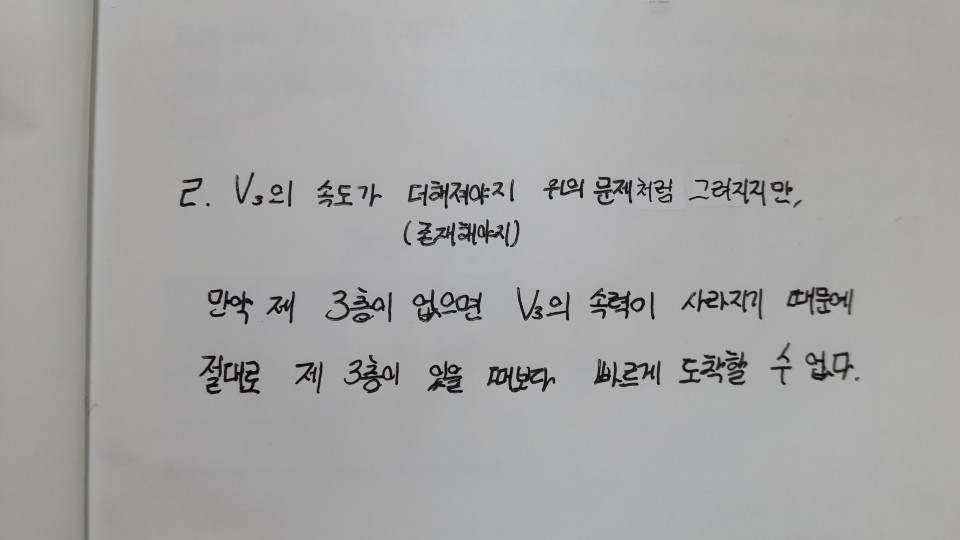 ㄹ. V₃의 속도가 더해져야지 위의 문제처럼 그려지지만,
(존재해야지)
만약 제 3층이 없으면 V₃의 속력이 사라지기 때문에
절대로 제 3층이 있을 때보다 빠르게 도착할 수 없다.